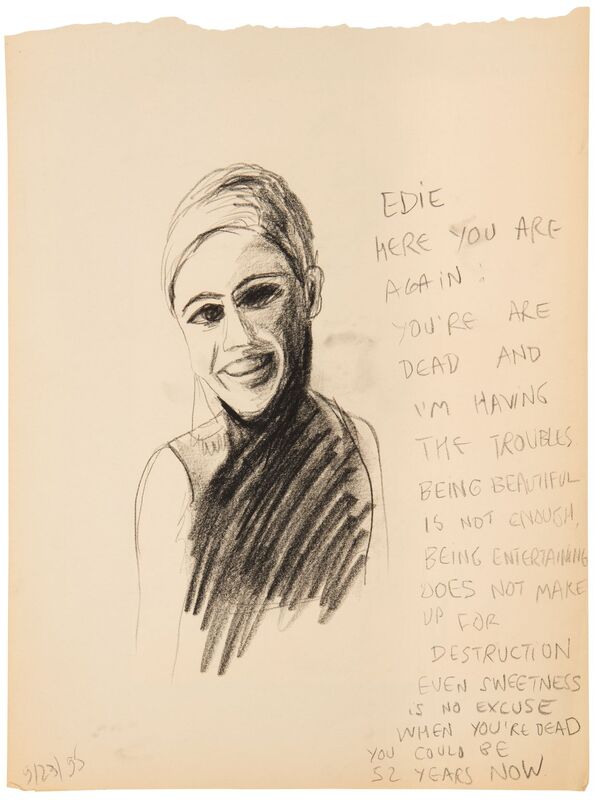 EDIE
HERE YOU ARE
AGAIN:
YOU'RE ARE
DEAD AND
I'M HAVING
THE TROUBLES
BEING BEAUTIFUL
IS NOT ENOUGH,
BEING ENTERTAINING
DOES NOT MAKE
UP FOR
DESTRUCTION
EVEN SWEETNESS
IS NO EXCUSE
WHEN YOU'RE DEAD
YOU COULD BE
52 YEARS NOW